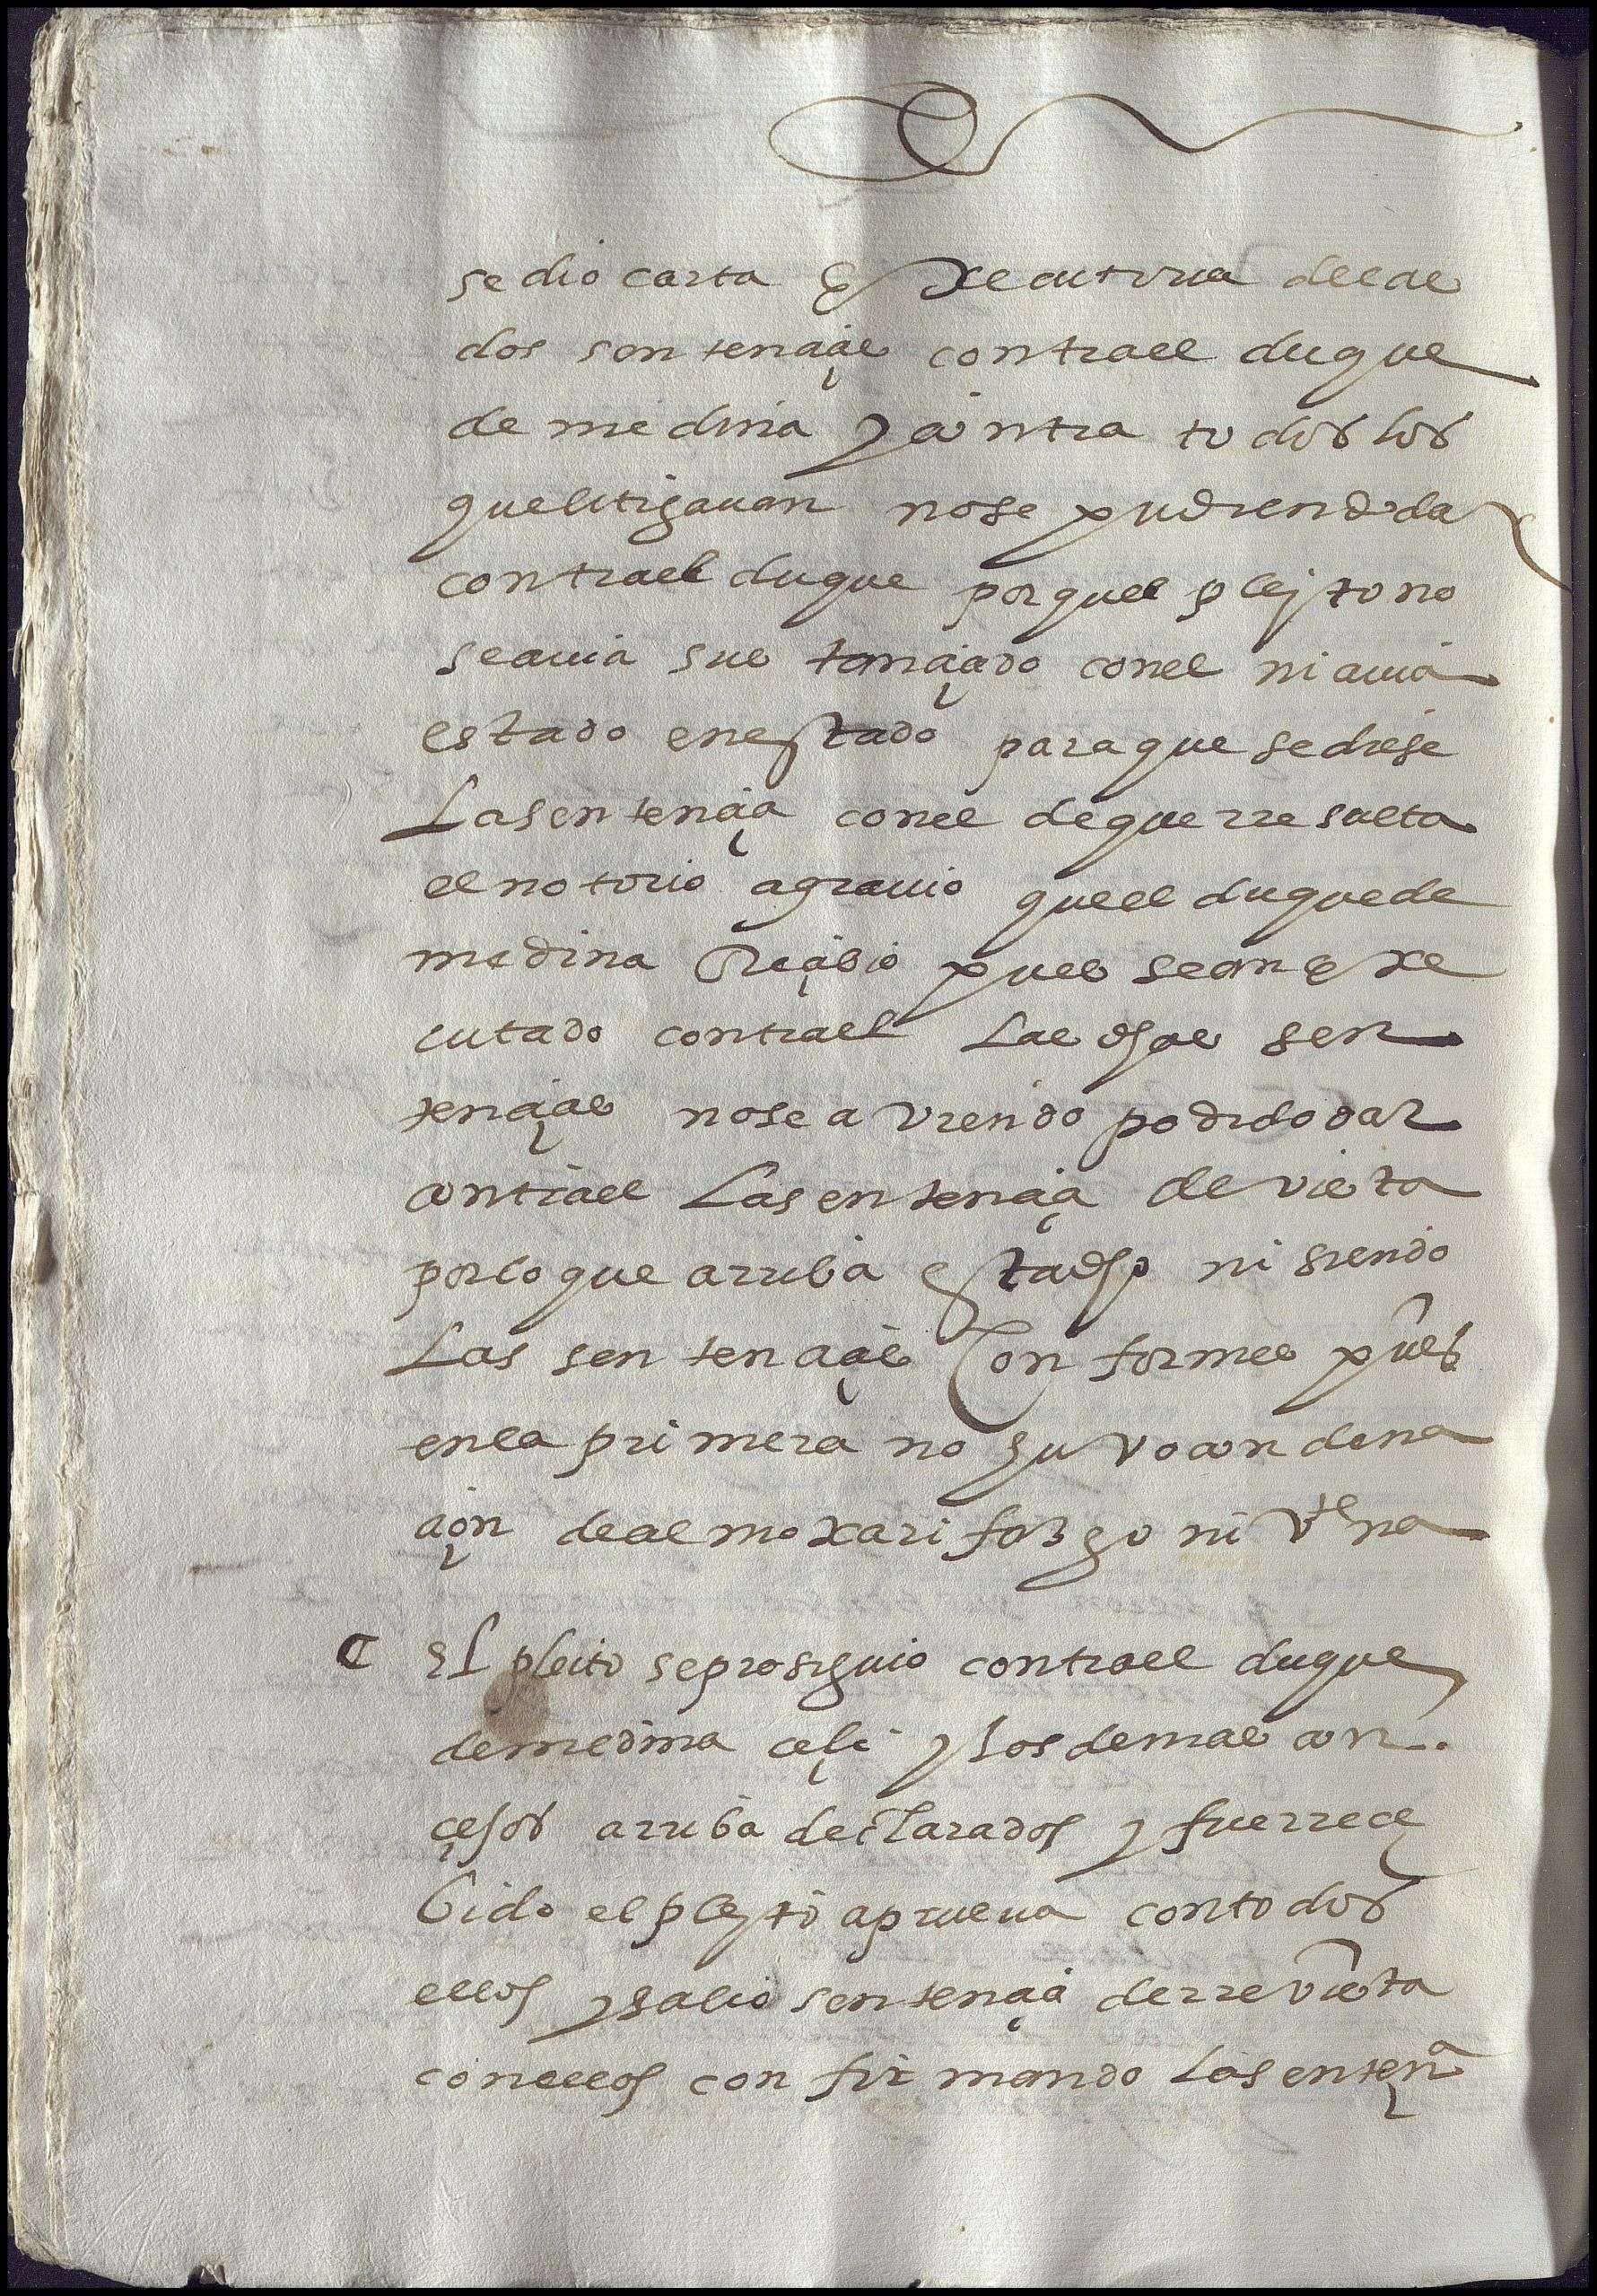 se dio carta executoria delas
dos sentençias contra el duque
de medina y contra todos los
que litigavan no se pudiendo dar
contra el duque porque el pleyto no
se avia sustançiado con el ni avia
estado en estado para que se diese
la sentençia con el de que rresulta
el notorio agravio que el duque de
medina Reçibio pues se an exe
cutado contra el las dhas sen
tençias no se aviendo podido dar
contra el la sentençia de vista
por lo que arriba esta dho ni siendo
las sentençias conformes pues
en la primera no huvo condena
çion de almoxarifazgo ni

C El pleito se prosiguio contra el duque
de medina çeli y los demas con
çejos arriba declarados y fue rreçe
bido el pleyto a prueva con todos
ellos y salio sentençia de rrevista
con ellos confirmando la sentençia